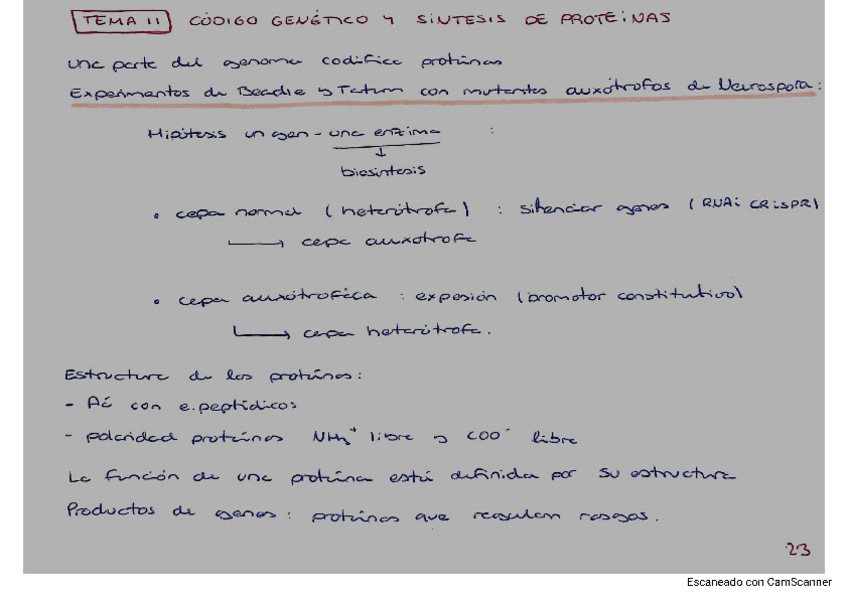 TEMA 11 CÓDIGO GENÉTICO Y SÍNTESIS DE PROTEINAS
Una parte del genoma codifica proteinas
Experimentos de Beadle y Tatum con mutantes auxótrofos de Neurospora:
Hipótesis un gen - una enzima :
↓
biosintesis
• cepa normal (heterótrofa) : silenciar genes (RNAi CRISPR)
→ cepa auxótrofa
• cepa auxótrofica : expesión (promotor constitutivo)
→ cepa heterótrofa.
Estructura de las proteinas:
- Aá con e.peptídicos
- polaridad proteinas NH₃⁺ libre y COO⁻ libre
La función de una proteína está definida por su estructura
Productos de genes: proteinas que regulan rasgos.
23
Escaneado con CamScanner